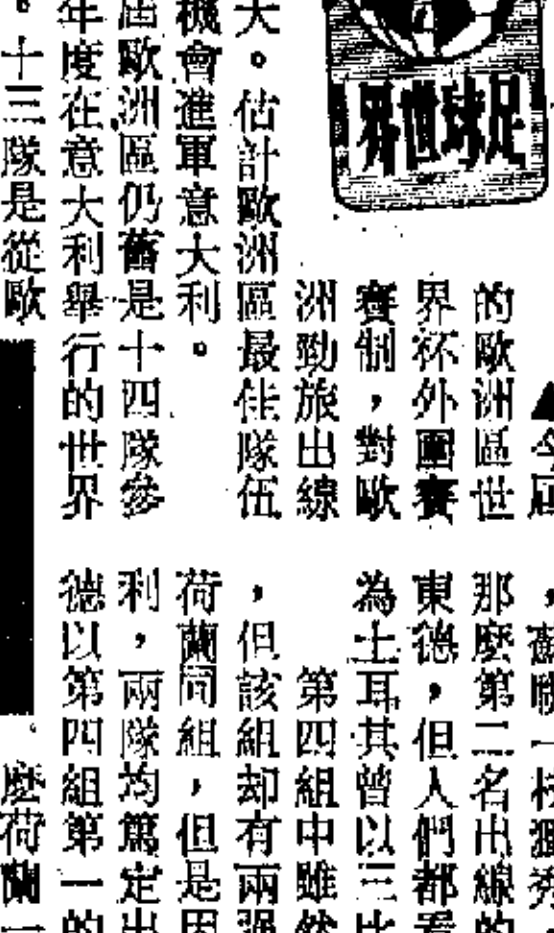 足球世界
▲今屆
的歐洲區世
界杯外圍賽
賽制，對歐
洲勁旅出線
大。估計歐洲區最佳隊伍
機會進軍意大利。
屆歐洲區仍舊是十四隊參
年度在意大利舉行的世界
。十三隊是從歐
，蘇聯一枝獨秀
那麼第二名出線的
東德，但人們都看
為土耳其曾以三比
第四組中雖然
，但該組却有兩強
荷蘭同組，但是因
利，兩隊均篤定出
德以第四組第一的
麼荷蘭一